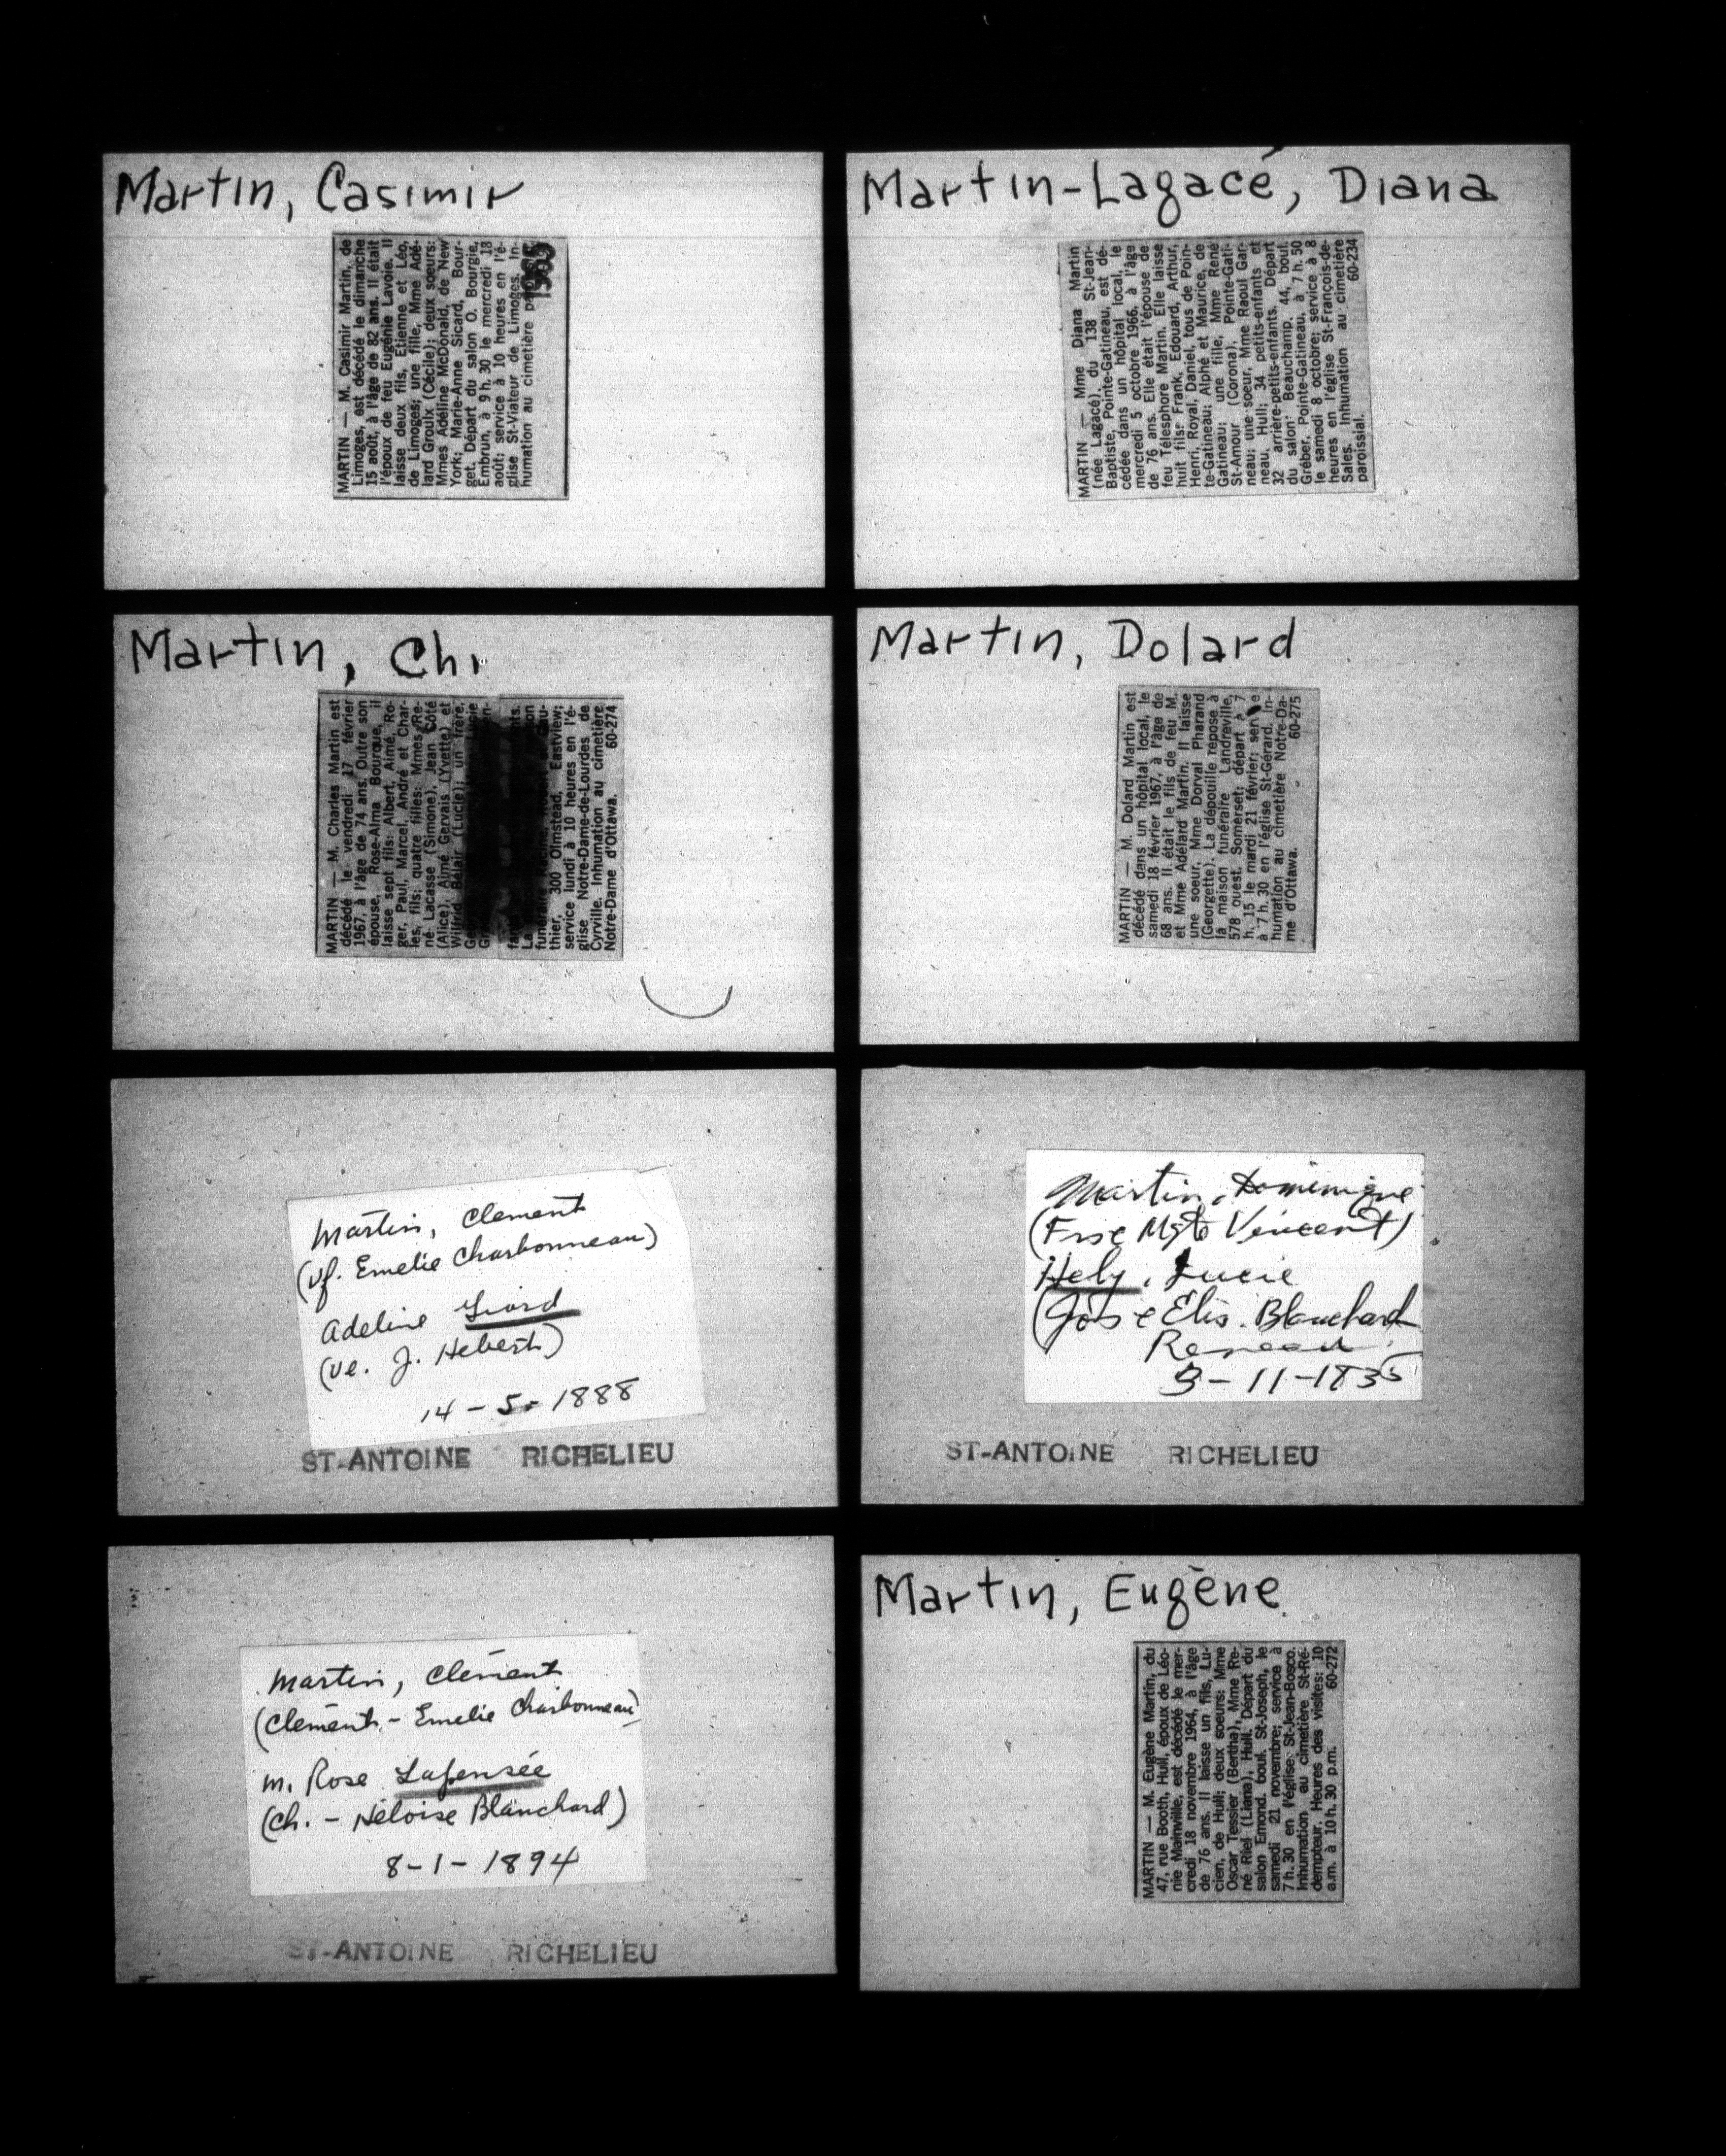 Martin, Casimir
MARTIN — M. Casimir Martin, de
Limoges, est décédé le dimanche
15 août, à l'âge de 82 ans. Il était
l'époux de feu Eugénie Lavoie. Il
laisse deux fils, Etienne et Léo,
de Limoges; une fille, Mme Adé-
lard Groulx (Cécile); deux soeurs:
Mmes Adéline McDonald, de New
York; Marie-Anne Sicard, Bour-
get. Départ du salon O. Bourgie,
Embrun, à 9 h. 30 le mercredi 18
août; service à 10 heures en l'é-
glise St-Viateur de Limoges. In-
humation au cimetière
Martin-Lagacé, Diana
MARTIN — Mme Diana Martin
(née Lagacé), du 138 St-Jean-
Baptiste, Pointe-Gatineau, est dé-
cédée dans un hôpital local, le
mercredi 5 octobre 1966, à l'âge
de 76 ans. Elle était l'épouse de
feu Télesphore Martin. Elle laisse
huit fils: Frank, Edouard, Arthur,
Henri, Royal, Daniel, tous de Poin-
te-Gatineau; Alphé et Maurice, de
Gatineau; une fille, Mme René
St-Amour (Corona), Pointe-Gati-
neau; une soeur, Mme Raoul Gar-
neau, Hull; 34 petits-enfants et
32 arrière-petits-enfants. Départ
du salon Beauchamp, 44, boul.
Gréber, Pointe-Gatineau, à 7 h. 50
le samedi 8 octobre; service à 8
heures en l'église St-François-de-
Sales. Inhumation au cimetière
paroissial. 60-234
Martin, Ch
MARTIN — M. Charles Martin est
décédé le vendredi 17 février
1967, à l'âge de 74 ans. Outre son
épouse, Rose-Alma Bourque, il
laisse sept fils: Albert, Aimé, Ro-
ger, Paul, Marcel, André et Char-
les, fils; quatre filles: Mmes Re-
né Lacasse (Simone), Jean Côté
(Alice), Aimé Gervais (Yvette) et
Wilfrid Bélair (Lucie); un frère,
thier, 300 Olmstead, Eastview;
service lundi à 10 heures en l'é-
glise Notre-Dame-de-Lourdes de
Cyrville. Inhumation au cimetière
Notre-Dame d'Ottawa. 60-274
Martin, Dolard
MARTIN — M. Dolard Martin est
décédé dans un hôpital local, le
samedi 18 février 1967, à l'âge de
68 ans. Il était le fils de feu M.
et Mme Adélard Martin. Il laisse
une soeur, Mme Dorval Pharand
(Georgette). La dépouille repose à
la maison funéraire Landreville,
578 ouest, Somerset; départ à 7
h. 15 le mardi 21 février;
à 7 h. 30 en l'église St-Gérard. In-
humation au cimetière Notre-Da-
me d'Ottawa. 60-275
Martin, Clement
(vf. Emelie Charbonneau)
Adeline Giard
(ve. J. Hebert)
14-5-1888
ST-ANTOINE RICHELIEU
Martin, Dominique
(Frs & Mgte Vincent)
Hely, Lucie
(Jos & Elis. Blanchard
3-11-1835
ST-ANTOINE RICHELIEU
Martin, Clément
(Clément - Emelie Charbonneau)
m. Rose Lapensée
(Ch. - Héloise Blanchard)
8-1-1894
ST-ANTOINE RICHELIEU
Martin, Eugène
MARTIN — M. Eugène Martin, du
47, rue Booth, Hull, époux de Léo-
nie Mainville, est décédé le mer-
credi 18 novembre 1964, à l'âge
de 76 ans. Il laisse un fils, Lu-
cien, de Hull; deux soeurs: Mme
Oscar Tessier (Bertha), Mme Re-
né Riel (Liana), Hull. Départ du
salon Emond, boul. St-Joseph, le
samedi 21 novembre; service à
7 h. 30 en l'église St-Jean-Bosco.
Inhumation au cimetière St-Ré-
dempteur. Heures des visites: 10
a.m. à 10 h. 30 p.m. 60-272